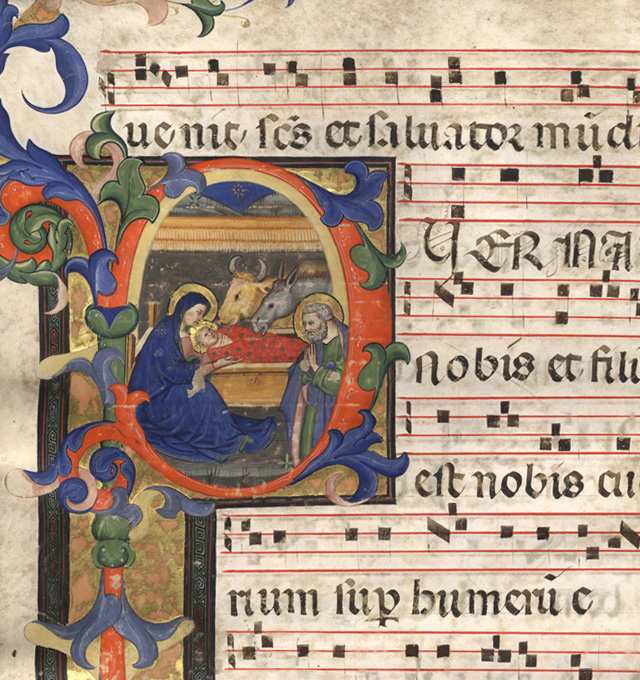 ue nit sc̄s et saluator mūdi
P VER NA
nobis et fili
est nobis cu
rium suꝑ humerū e